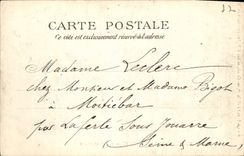 CARTE POSTALE
Ce côté est exclusivement réservé à l'adresse
Madame Leclerc
chez Monsieur et Madame Bizot
à Moitiebar
par Laferte Sous Jouarre
Seine & Marne